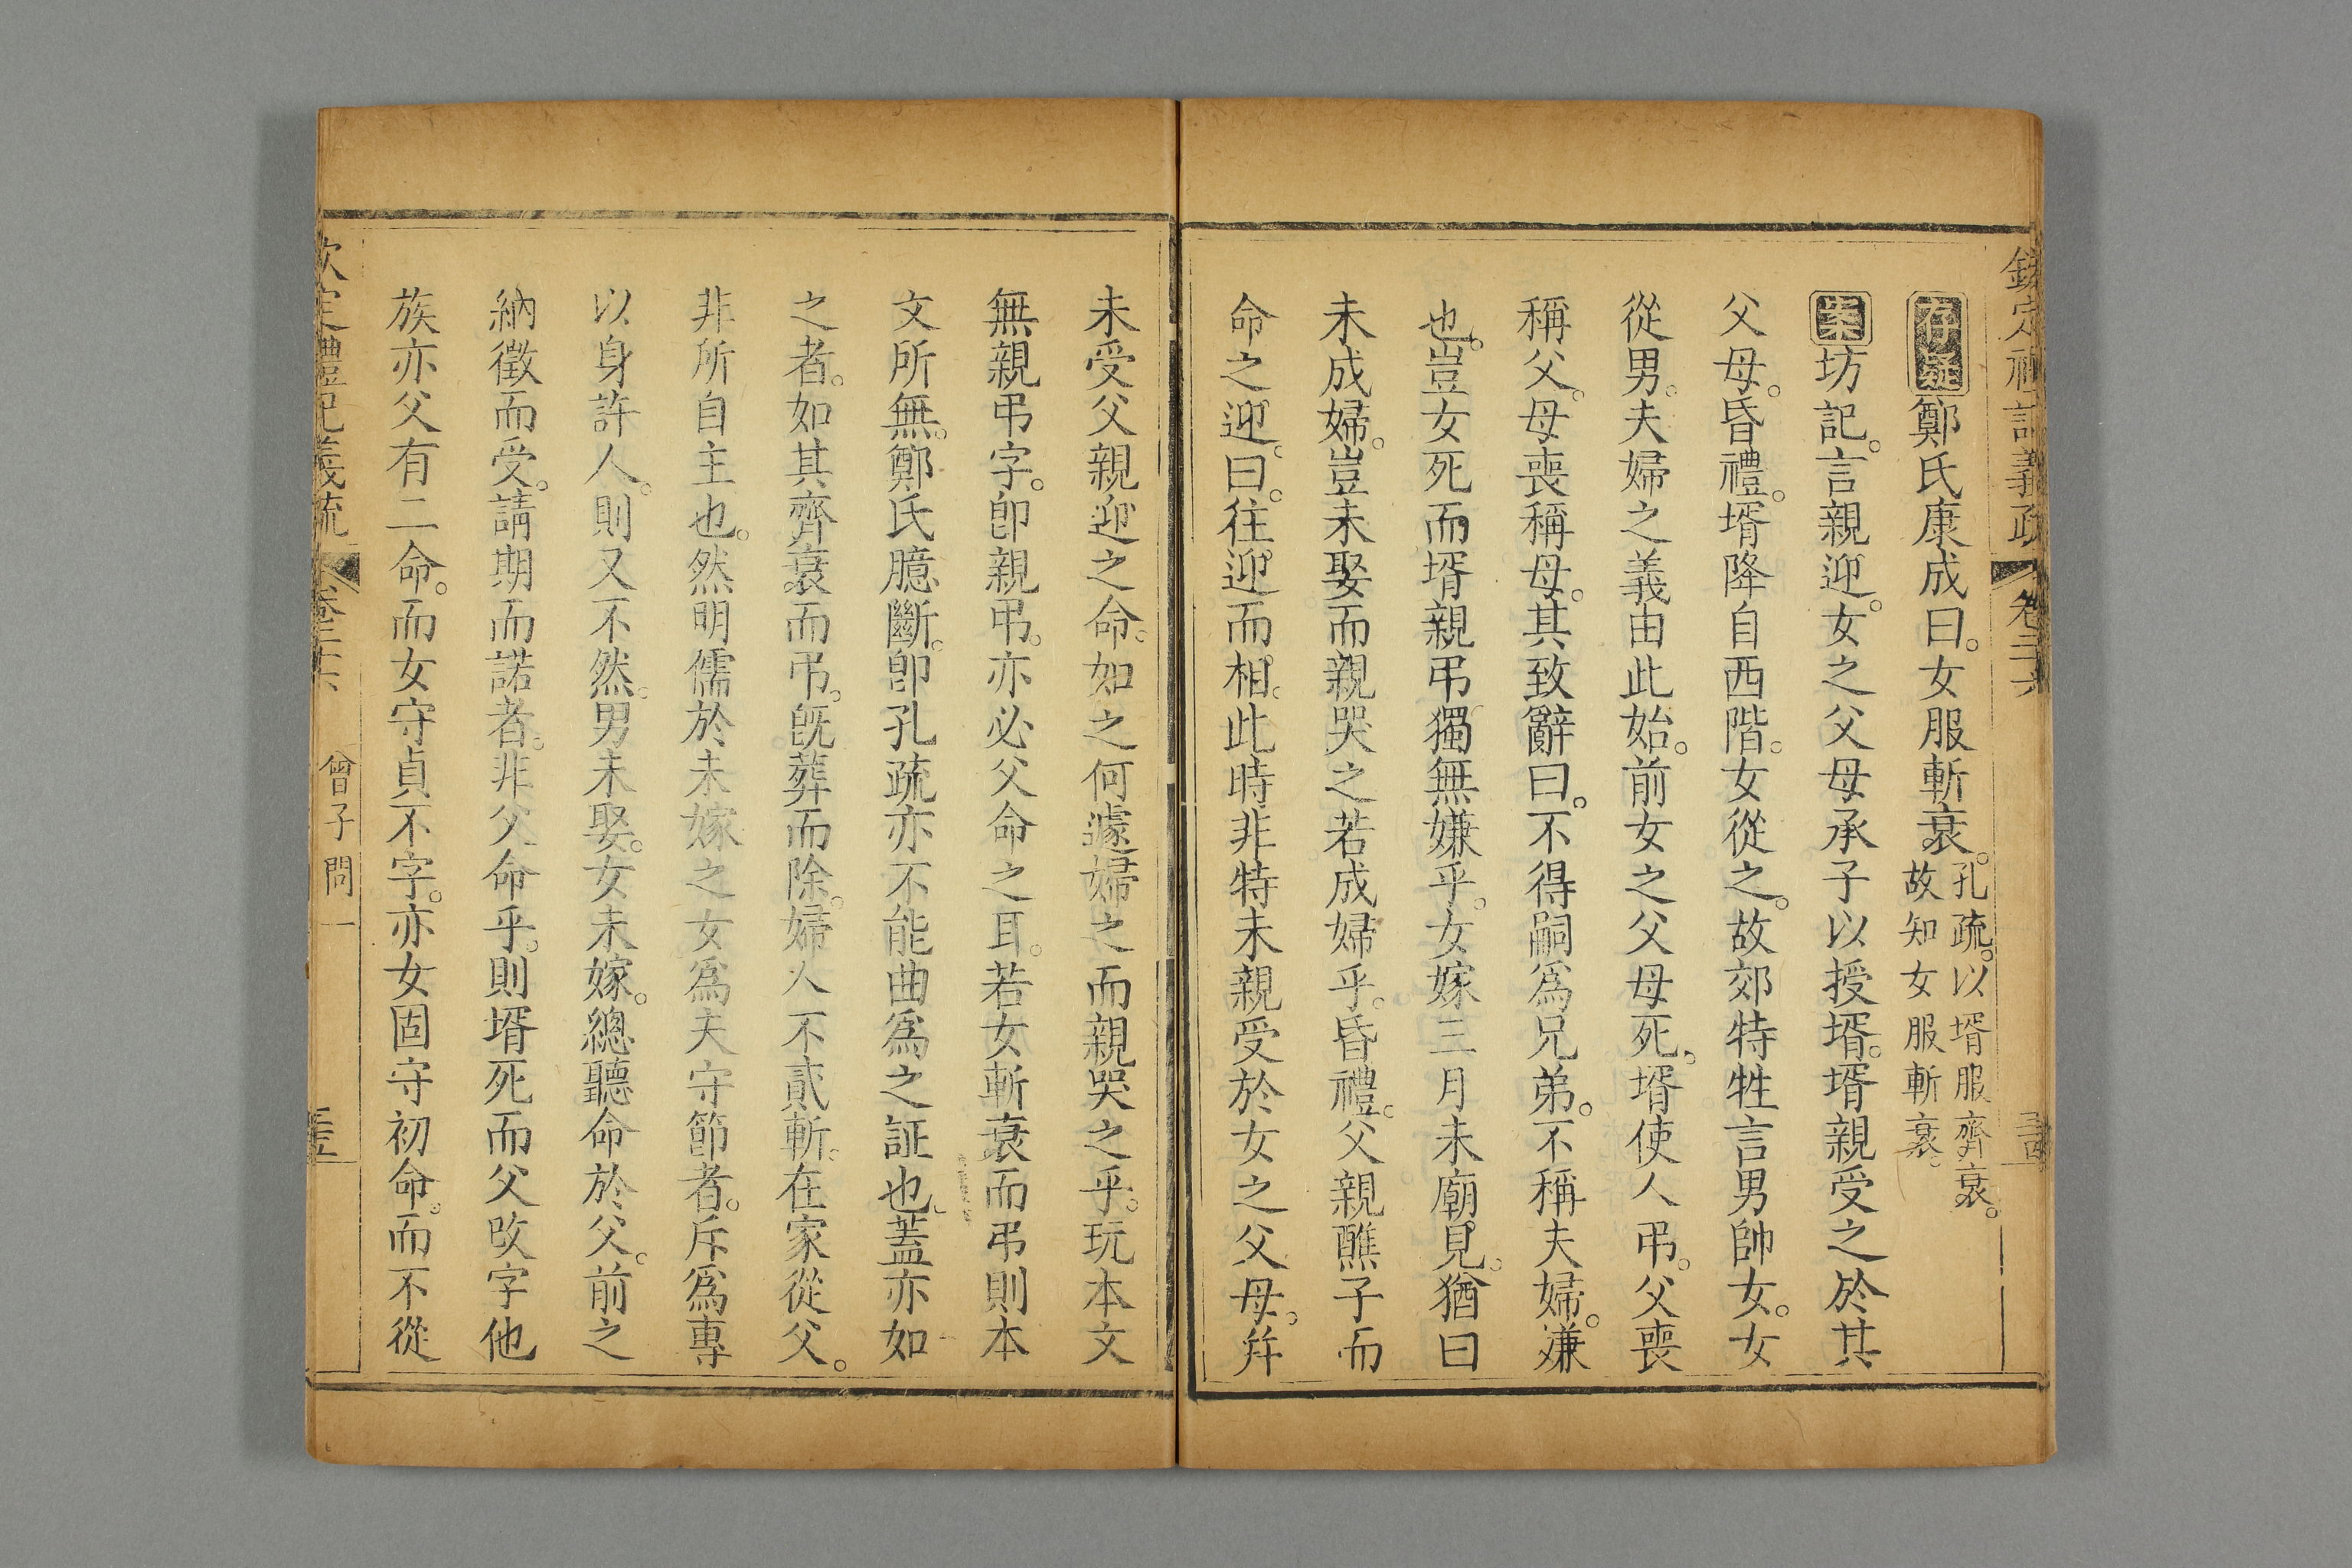 欽定禮記義疏 卷二十六
存疑鄭氏康成曰。女服斬衰。孔疏。以壻服齊衰。
故知女服斬衰。
案坊記。言親迎。女之父母承子以授壻。壻親受之於其
父母。昏禮。壻降自西階。女從之。故郊特牲言男帥女。女
從男。夫婦之義由此始。前女之父母死。壻使人弔。父喪
稱父。母喪稱母。其致辭曰。不得嗣爲兄弟。不稱夫婦。嫌
也。豈女死而壻親弔獨無嫌乎。女嫁三月未廟見。猶曰
未成婦。豈未娶而親哭之若成婦乎。昏禮。父親醮子而
命之迎。曰。往迎而相。此時非特未親受於女之父母。并
未受父親迎之命。如之何遽婦之而親哭之乎。玩本文
無親弔字。卽親弔。亦必父命之耳。若女斬衰而弔則本
文所無。鄭氏臆斷。卽孔疏亦不能曲爲之証也。蓋亦如
之者。如其齊衰而弔。旣葬而除。婦人不貳斬。在家從父。
非所自主也。然明儒於未嫁之女爲夫守節者。斥爲專
以身許人。則又不然。男未娶。女未嫁。總聽命於父。前之
納徵而受。請期而諾者。非父命乎。則壻死而父改字他
族亦父有二命。而女守貞不字。亦女固守初命。而不從
欽定禮記義疏 卷二十六 曾子問一